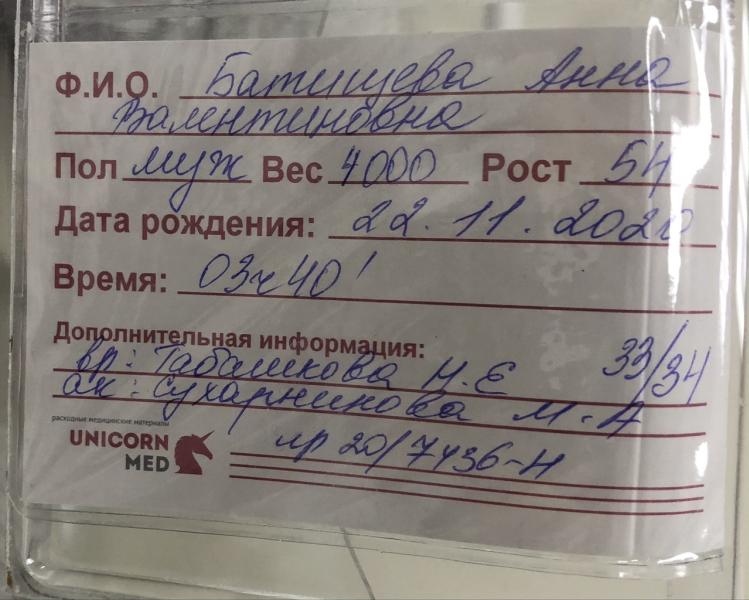 Ф.И.О. Батищева Анна
Валентиновна
Пол муж Вес 4000 Рост 54
Дата рождения: 22.11.2020
Время: 03ч40'
Дополнительная информация:
вр: Табашкова Н.Е 33/34
ак: Сухарникова М.А
расходные медицинские материалы
UNICORN
MED
ир 20/7436-Н